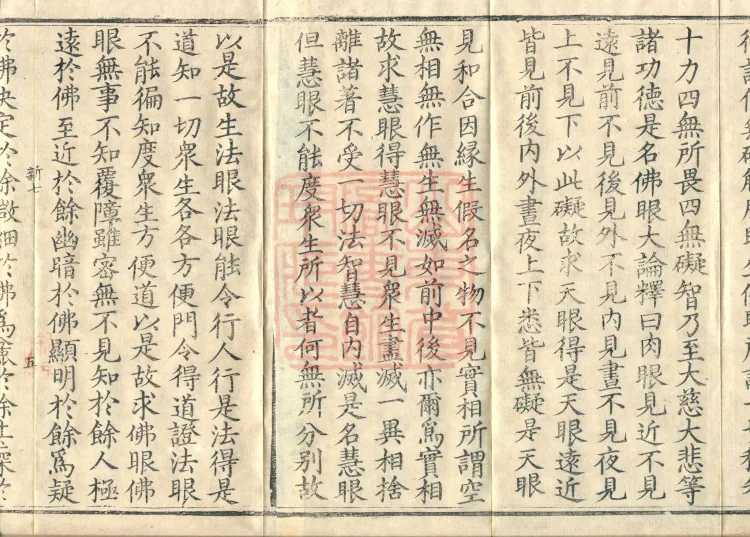 十力四無所畏四無礙智乃至大慈大悲等
諸功德是名佛眼大論釋曰肉眼見近不見
遠見前不見後見外不見內見晝不見夜見
上不見下以此礙故求天眼得是天眼遠近
皆見前後內外晝夜上下悉皆無礙是天眼
見和合因緣生假名之物不見實相所謂空
無相無作無生無滅如前中後亦爾爲實相
故求慧眼得慧眼不見衆生盡滅一異相捨
離諸著不受一切法智慧自內滅是名慧眼
但慧眼不能度衆生所以者何無所分別故
以是故生法眼法眼能令行人行是法得是
道知一切衆生各各方便門令得道證法眼
不能徧知度衆生方便道以是故求佛眼佛
眼無事不知覆障雖密無不見知於餘人極
遠於佛至近於餘幽暗於佛顯明於餘爲疑
新七
五
於佛決定於餘微細於佛爲麤於餘甚深於